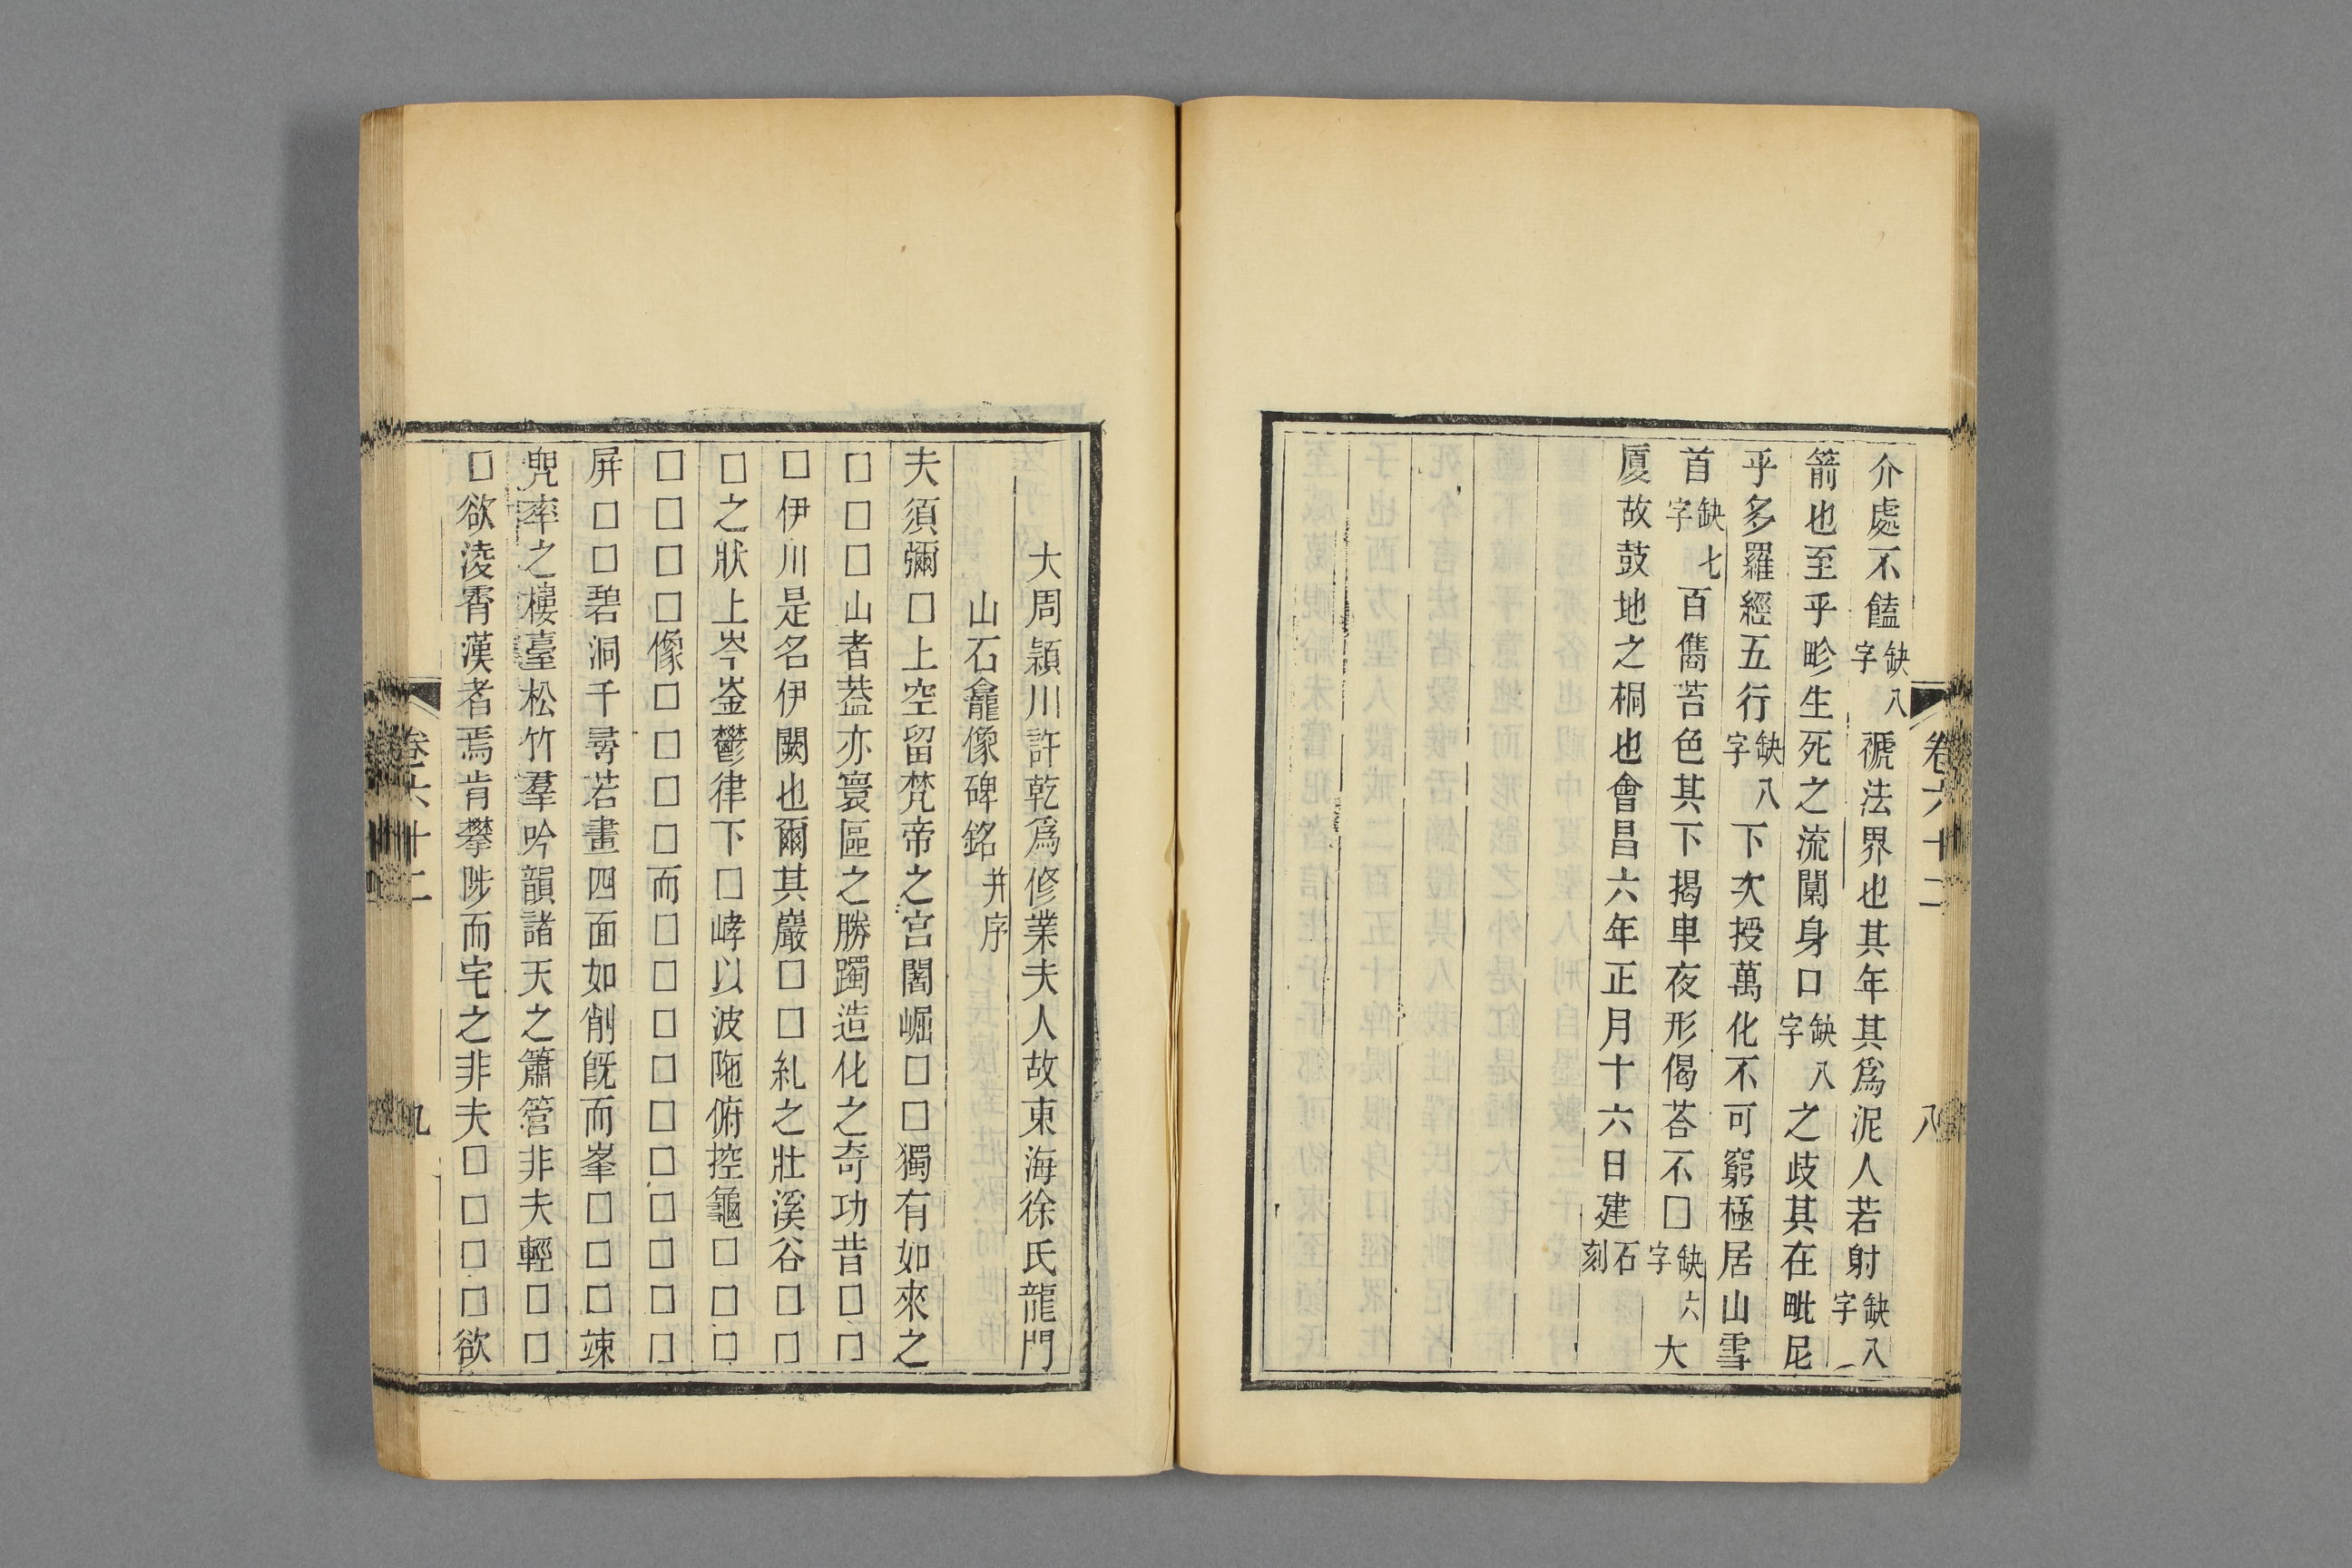 卷六十二
八
介處不饁缺八字褫法界也其年其爲泥人若射缺八字
箭也至乎畛生死之流闑身口缺八字之歧其在毗尼
乎多羅經五行缺八字下次授萬化不可窮極居山雪
首缺七字百儁苔色其下揭車夜形偈荅不□缺六字大
厦故鼓地之桐也會昌六年正月十六日建石刻
大周潁川許乾爲修業夫人故東海徐氏龍門
山石龕像碑銘并序
夫須彌□上空留梵帝之宮闍崛□□獨有如來之
□□□山者葢亦寰區之勝躅造化之奇功昔□□
□伊川是名伊闕也爾其巖□□糺之壯溪谷□□
□之狀上岑崟鬱律下□崻以波陁俯控龜□□□
□□□□像□□□□而□□□□□□□□□□
屏□□碧洞千尋若畫四面如削旣而峯□□□竦
兜率之樓臺松竹羣吟韻諸天之簫管非夫輕□□
□欲淩霄漢者焉肯攀陟而宅之非夫□□□□欲
卷六十二
九